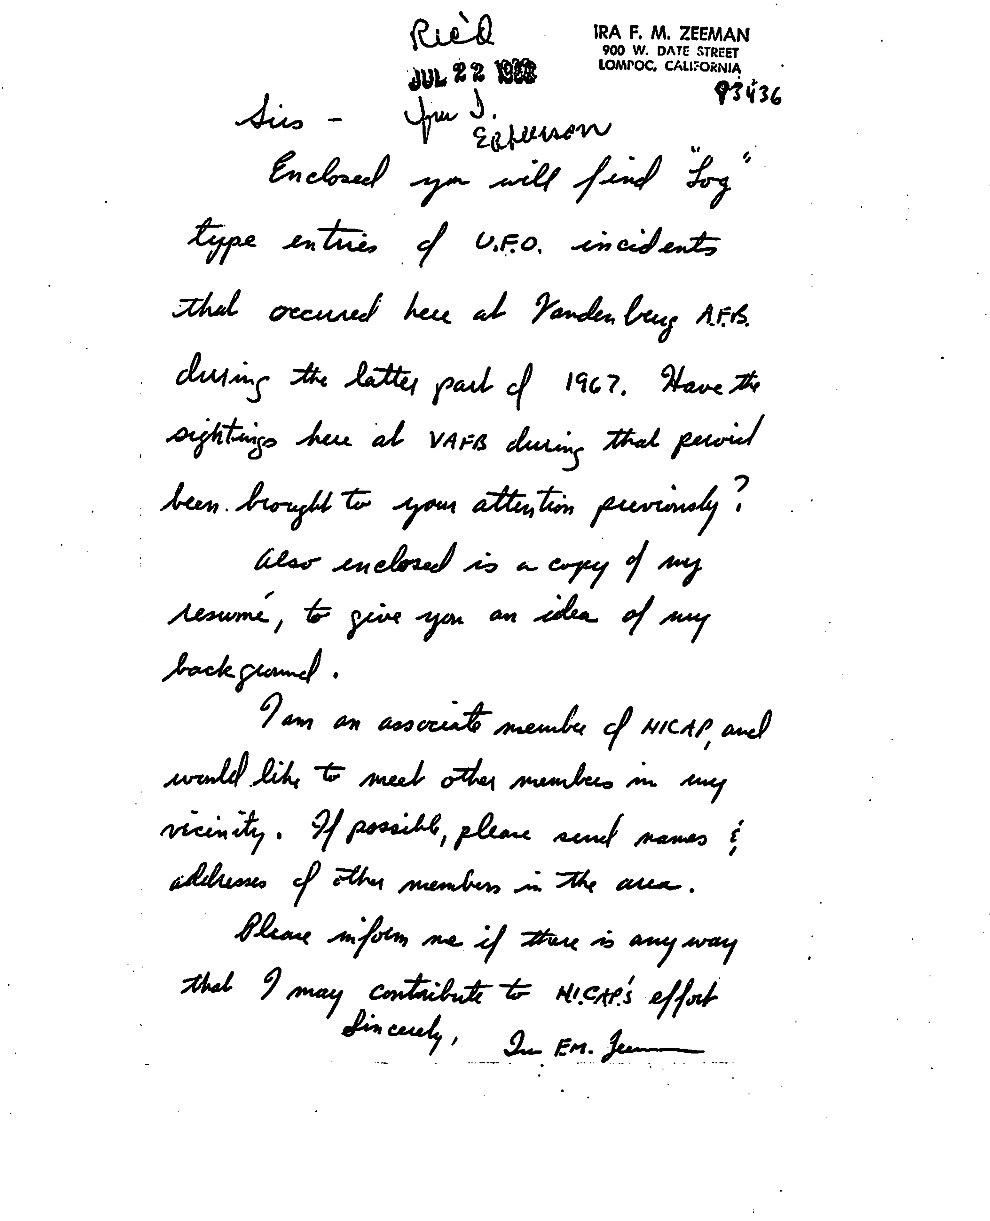 Rec'd
JUL 22
IRA F. M. ZEEMAN
900 W. DATE STREET
LOMPOC, CALIFORNIA
93436
Sirs -
Enclosed you will find "Log"
type entries of U.F.O. incidents
that occured here at Vandenberg A.F.B.
during the latter part of 1967. Have the
sightings here at VAFB during that peroid
been brought to your attention previously?
Also enclosed is a copy of my
resumé, to give you an idea of my
background.
I am an associate member of NICAP, and
would like to meet other members in my
vicinity. If possible, please send names &
addresses of other members in the area.
Please inform me if there is any way
that I may contribute to N.I.C.A.P.'s effort
Sincerely, Ira F.M. Zeeman